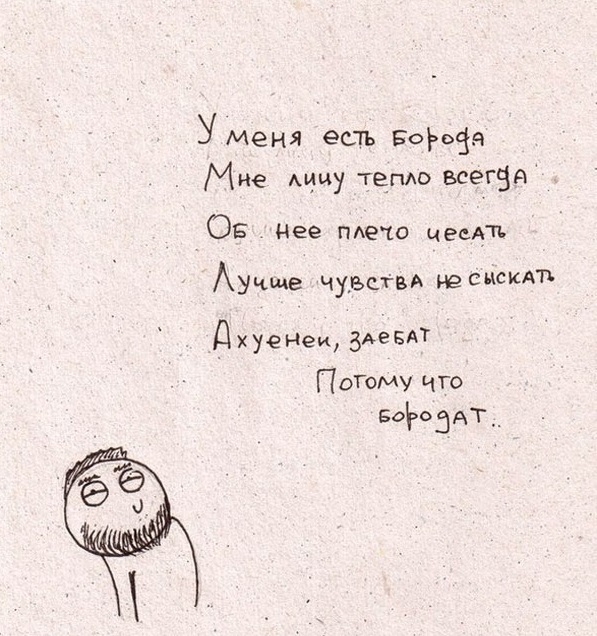 У меня есть борода
Мне лицу тепло всегда
Об нее плечо чесать
Лучше чувства не сыскать
Ахуенен, заебат
Потому что
бородат..